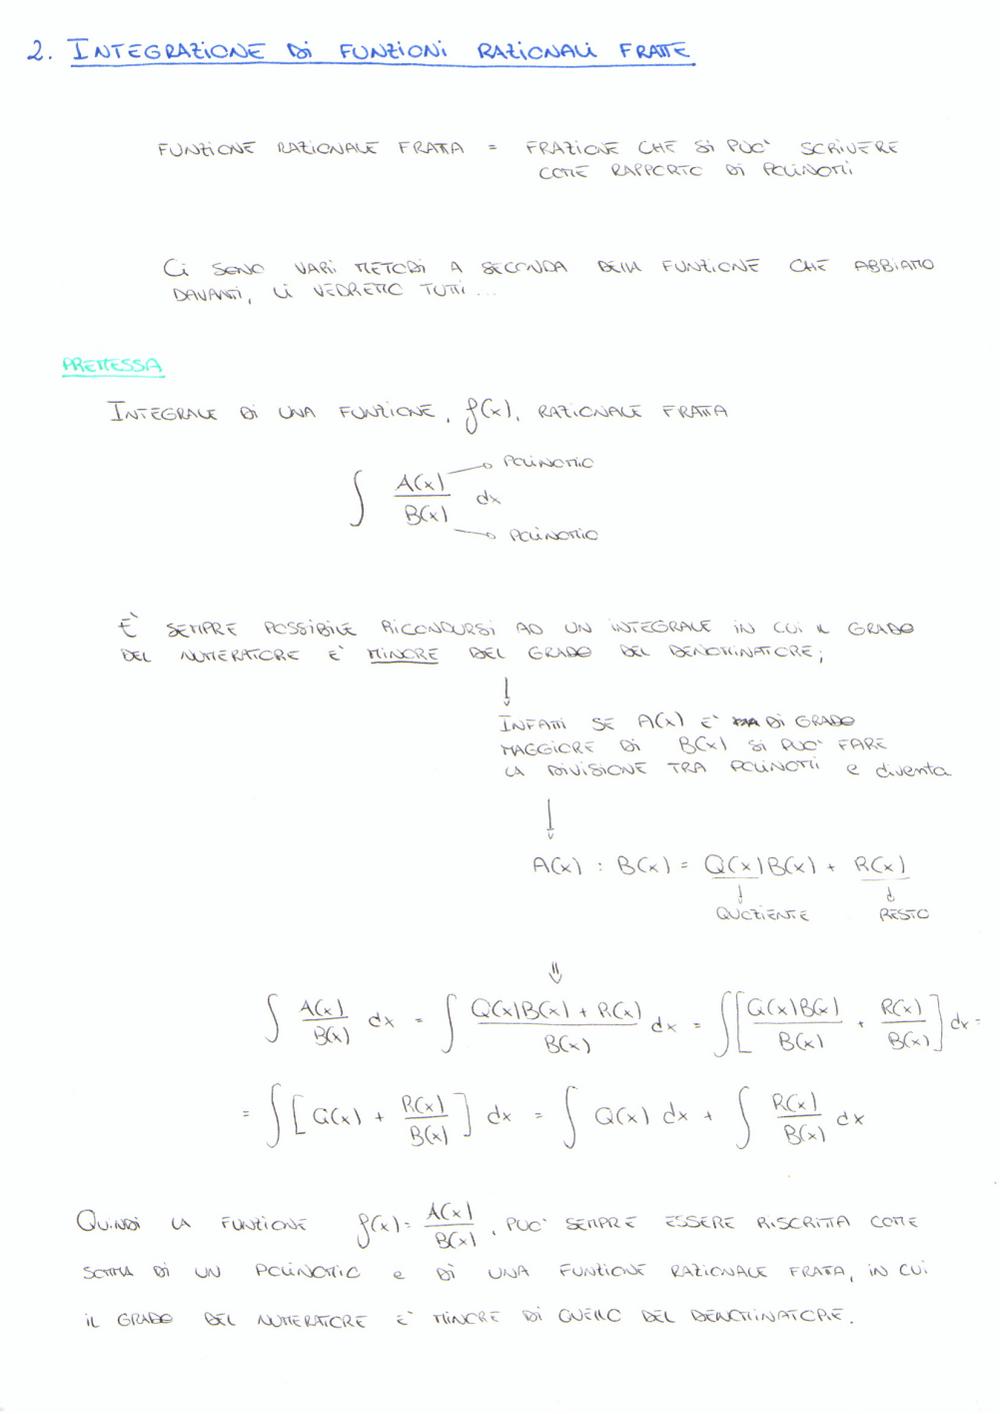 2. INTEGRAZIONE Di FUNZIONi RAZIONALi FRATTE
FUNZIONE RAZIONALE FRATTA = FRAZIONE CHE Si PUO' SCRIVERE
COME RAPPORTO Di POLINOMi
Ci SONO VARi METODi A SECONDA DELLA FUNZIONE CHE ABBIAMO
DAVANTi, Li VEDREMO TUTTi...
PREMESSA
INTEGRALE Di UNA FUNZIONE, f(x), RAZIONALE FRATTA
∫ A(x)/B(x) dx
POLINOMiO
POLINOMiO
E' SEMPRE POSSiBiLE RiCONDURSi AD UN iNTEGRALE iN CUi iL GRADO
DEL NUMERATORE E' MiNORE DEL GRADO DEL DENOMiNATORE;
↓
INFATTi SE A(x) E' Di GRADO
MAGGiORE Di B(x) Si PUO' FARE
LA DiViSiONE TRA POLiNOMi e diventa
↓
A(x) : B(x) = Q(x)B(x) + R(x)
QUOZiENTE RESTO
⇓
∫ A(x)/B(x) dx = ∫ Q(x)B(x) + R(x)/B(x) dx = ∫[Q(x)B(x)/B(x) + R(x)/B(x)] dx =
= ∫[Q(x) + R(x)/B(x)] dx = ∫ Q(x) dx + ∫ R(x)/B(x) dx
QUiNDi LA FUNZiONE f(x) = A(x)/B(x), PUO' SEMPRE ESSERE RiSCRiTTA COME
SOMMA Di UN POLiNOMiO e Di UNA FUNZiONE RAZiONALE FRATTA, iN CUi
iL GRADO DEL NUMERATORE E' MiNORE Di QUELLO DEL DENOMiNATORE.